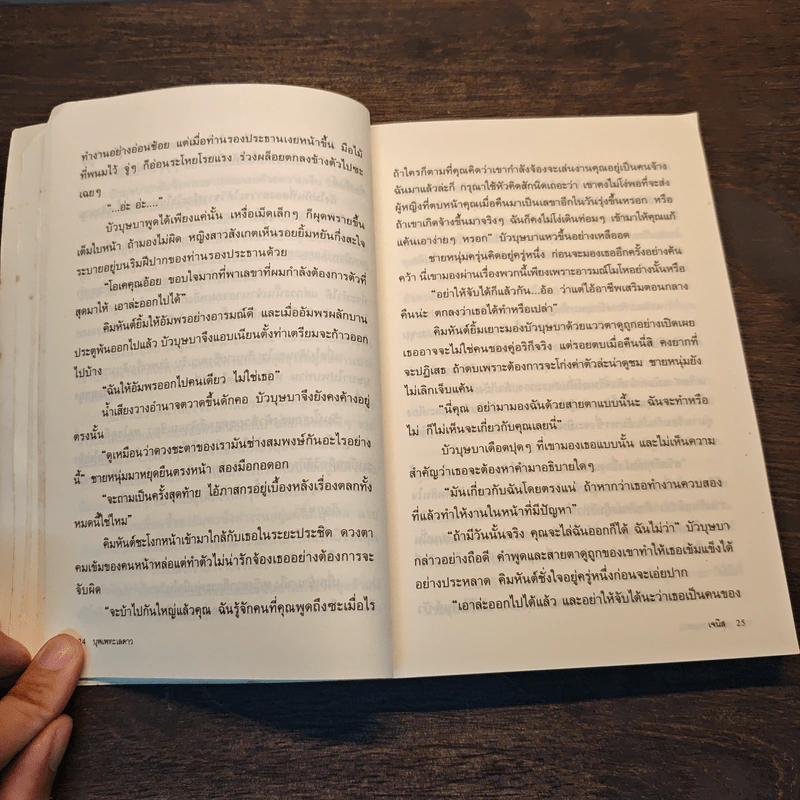 ทำงานอย่างอ่อนช้อย แต่เมื่อท่านรองประธานเงยหน้าขึ้น มือไม้
ที่พนมไว้ จู่ๆ ก็อ่อนระโหยโรยแรง ร่วงผล็อยตกลงข้างตัวไปซะ
เฉยๆ
“...อ่ะ อ่ะ....”
บัวบุษบาพูดได้เพียงแค่นั้น เหงื่อเม็ดเล็กๆ ก็ผุดพรายขึ้น
เต็มใบหน้า ถ้ามองไม่ผิด หญิงสาวสังเกตเห็นรอยยิ้มหยันกึ่งสะใจ
ระบายอยู่บนริมฝีปากของท่านรองประธานด้วย
“โอเคคุณอ้อย ขอบใจมากที่พาเลขาที่ผมกำลังต้องการตัวที่
สุดมาให้ เอาล่ะออกไปได้”
คิมหันต์ยิ้มให้อัมพรอย่างอารมณ์ดี และเมื่ออัมพรผลักบาน
ประตูพ้นออกไปแล้ว บัวบุษบาจึงแอบเนียนตั้งท่าเตรียมจะก้าวออก
ไปบ้าง
“ฉันให้อัมพรออกไปคนเดียว ไม่ใช่เธอ”
น้ำเสียงวางอำนาจตวาดขึ้นดักคอ บัวบุษบาจึงยังคงค้างอยู่
ตรงนั้น
“ดูเหมือนว่าดวงชะตาของเรามันช่างสมพงษ์กันอะไรอย่าง
นี้” ชายหนุ่มมาหยุดยืนตรงหน้า สองมือกอดอก
“จะถามเป็นครั้งสุดท้าย ไอ้ภาสกรอยู่เบื้องหลังเรื่องตลกทั้ง
หมดนี้ใช่ไหม”
คิมหันต์ชะโงกหน้าเข้ามาใกล้กับเธอในระยะประชิด ดวงตา
คมเข้มของคนหน้าหล่อแต่ทำตัวไม่น่ารักจ้องเธออย่างต้องการจะ
จับผิด
“จะบ้าไปกันใหญ่แล้วคุณ ฉันรู้จักคนที่คุณพูดถึงซะเมื่อไร
24 บุพเพทะเลดาว
ถ้าใครก็ตามที่คุณคิดว่าเขากำลังจ้องจะเล่นงานคุณอยู่เป็นคนจ้าง
ฉันมาแล้วล่ะก็ กรุณาใช้หัวคิดสักนิดเถอะว่า เขาคงไม่โง่พอที่จะส่ง
ผู้หญิงที่ตบหน้าคุณเมื่อคืนมาเป็นเลขาอีกในวันรุ่งขึ้นหรอก หรือ
ถ้าเขาเกิดจ้างขึ้นมาจริงๆ ฉันก็คงไม่โง่เดินท่อมๆ เข้ามาให้คุณแก้
แค้นเอาง่ายๆ หรอก” บัวบุษบาแหวขึ้นอย่างเหลืออด
ชายหนุ่มครุ่นคิดอยู่ครู่หนึ่ง ก่อนจะมองเธออีกครั้งอย่างค้น
คว้า นี่เขามองผ่านเรื่องพวกนี้เพียงเพราะอารมณ์โมโหอย่างนั้นหรือ
“อย่าให้จับได้ก็แล้วกัน...อ้อ ว่าแต่ไอ้อาชีพเสริมตอนกลาง
คืนน่ะ ตกลงว่าเธอได้ทำหรือเปล่า”
คิมหันต์ยิ้มเยาะมองบัวบุษบาด้วยแววตาดูถูกอย่างเปิดเผย
เธออาจจะไม่ใช่คนของคู่อริก็จริง แต่รอยตบเมื่อคืนนี้สิ คงยากที่
จะปฏิเสธ ถ้าตบเพราะต้องการจะโก่งค่าตัวล่ะน่าดูชม ชายหนุ่มยัง
ไม่เลิกเจ็บแค้น
“นี่คุณ อย่ามามองฉันด้วยสายตาแบบนี้นะ ฉันจะทำหรือ
ไม่ ก็ไม่เห็นจะเกี่ยวกับคุณเลยนี่”
บัวบุษบาเดือดปุดๆ ที่เขามองเธอแบบนั้น และไม่เห็นความ
สำคัญว่าเธอจะต้องหาคำมาอธิบายใดๆ
“มันเกี่ยวกับฉันโดยตรงแน่ ถ้าหากว่าเธอทำงานควบสอง
ที่แล้วทำให้งานในหน้าที่มีปัญหา”
“ถ้ามีวันนั้นจริง คุณจะไล่ฉันออกก็ได้ ฉันไม่ว่า” บัวบุษบา
กล่าวอย่างถือดี คำพูดและสายตาดูถูกของเขาทำให้เธอเข้มแข็งได้
อย่างประหลาด คิมหันต์ชั่งใจอยู่ครู่หนึ่งก่อนจะเอ่ยปาก
“เอาล่ะออกไปได้แล้ว และอย่าให้จับได้นะว่าเธอเป็นคนของ
เจนิส 25